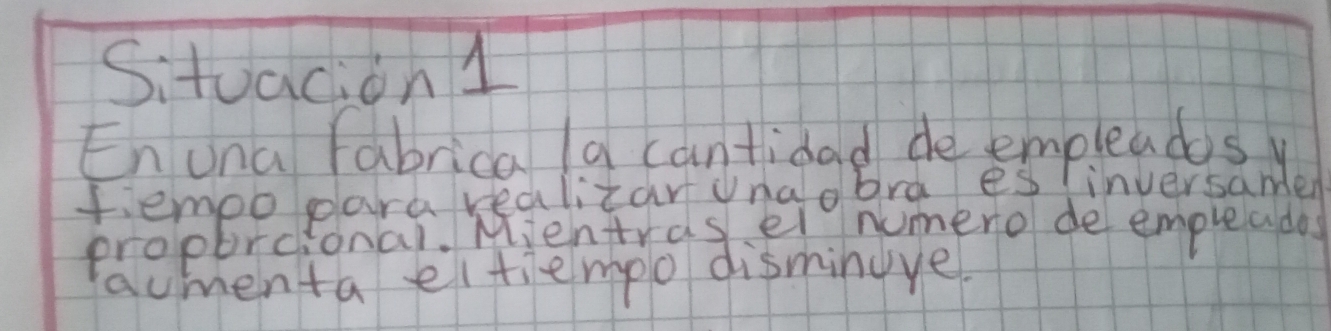 Situación 1
En una fabrica la cantidad de empleados y
tiempo para realizar una obra es inversamen
proporcional. Mientras el numero de empleados
aumenta el tiempo disminuye.